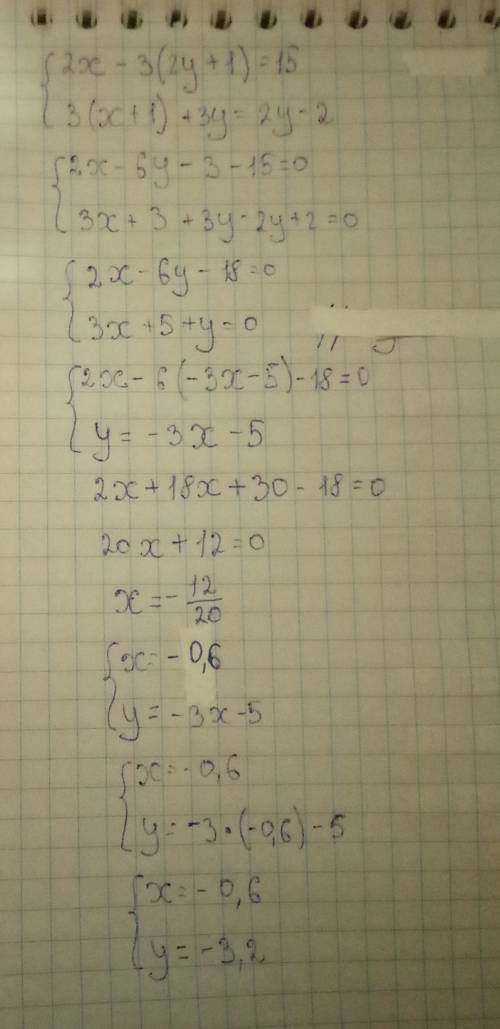 2x - 3(2y + 1) = 15
3(x+1) + 3y = 2y - 2
2x - 6y - 3 - 15 = 0
3x + 3 + 3y - 2y + 2 = 0
2x - 6y - 18 = 0
3x + 5 + y = 0
2x - 6(-3x - 5) - 18 = 0
y = -3x - 5
2x + 18x + 30 - 18 = 0
20x + 12 = 0
x = -12/20
x = -0,6
y = -3x - 5
x = -0,6
y = -3·(-0,6) - 5
x = -0,6
y = -3,2